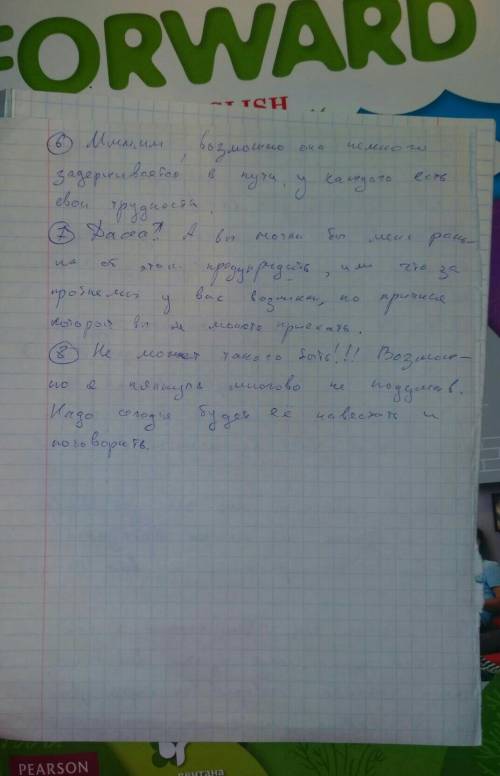 FORWARD
ENGLISH
6 Ммм.им, возможно она немного
задерживается в пути, у каждого есть
свои трудности.
7 Дааа?! А вы могли бы меня рань-
ше об этом предупредить, или что за
проблемы у вас возникли, по причине
которой вы не можете приехать.
8 Не может такого быть!!! Возмож-
но я ляпнула многово не подумав.
Надо сегодя будет её навестить и
поговорить.
PEARSON
вентана